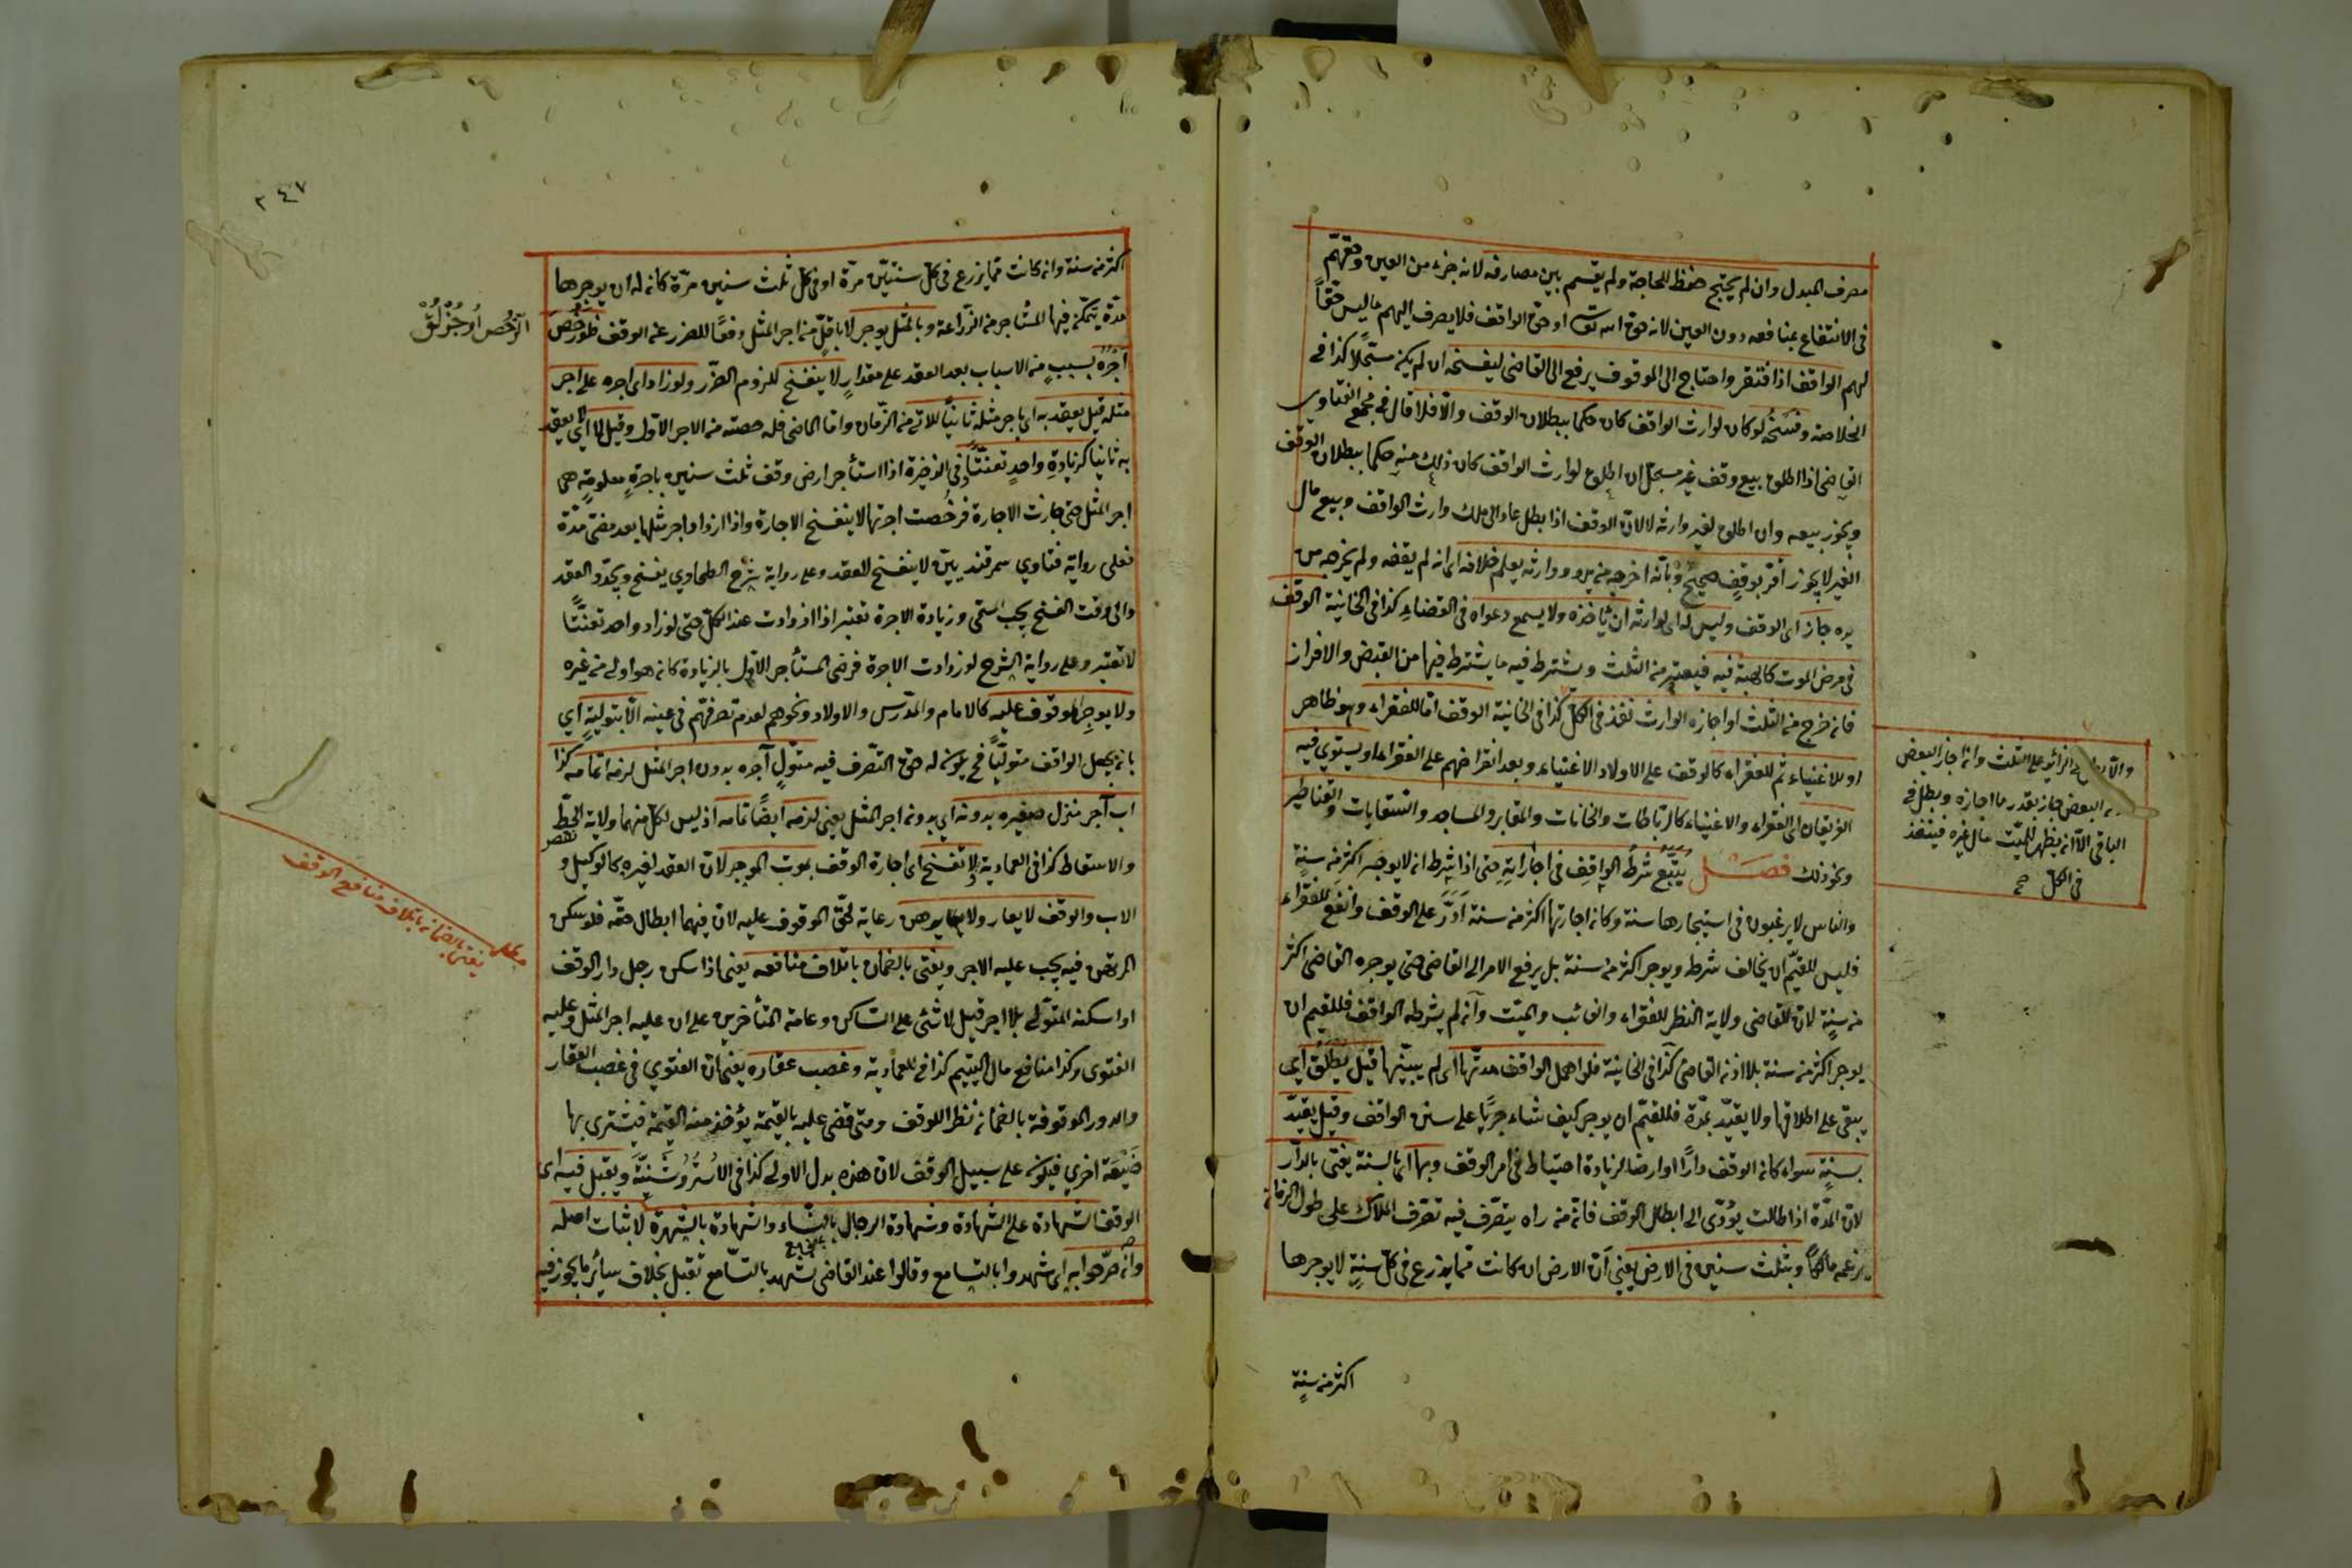 مصرف المبدل وان لم يحتج حفظ للحاجة ولم يقسم بين مصارفه لانه جزء من العين وحقهم
فى الانتفاع بمنافعه دون العين لانه حق الله تعالى او حق الواقف فلا يصرف اليهم ما ليس حقاً
لهم الواقف اذا افتقر واحتاج الى الموقوف يرفع الى القاضى ليفسخه ان لم يكن مسجّلا كذا فى
الخلاصة وفسخه لو كان لوارث الواقف كان حكما ببطلان الوقف والا فلا قال فى مجمع الفتاوى
القاضى اذا اطلق بيع وقف غير مسجل ان اطلق لوارث الواقف كان ذلك منه حكما ببطلان الوقف
ويجوز بيعه وان اطلق لغير وارثه لا لان الوقف اذا بطل عاد الى ملك وارث الواقف وبيع مال
الغير لا يجوز اقر بوقف صحيح وبانه اخرجه من يده ووارثه يعلم خلافه اى انه لم يقفه ولم يخرجه من
يده جاز اى الوقف وليس له اى لوارثه ان ياخذه ولا يسمع دعواه فى القضاء كذا فى الخانية الوقف
فى مرض الموت كالهبة فيه فيعتبر من الثلث ويشترط فيه ما يشترط فيها من القبض والافراز
فان خرج من الثلث او اجازه الوارث نفذ فى الكل كذا فى الخانية الوقف اما للفقراء وهو ظاهر
او للاغنياء ثم للفقراء كالوقف على الاولاد الاغنياء وبعد انقراضهم على الفقراء او يستوى فيه
الفريقان اى الفقراء والاغنياء كالرباطات والخانات والمقابر والمساجد والسقايات والقناطير
ونحو ذلك فصل يتبع شرط الواقف فى اجارته حتى اذا شرط ان لا يوجر اكثر من سنة
والناس لا يرغبون فى استيجارها سنة وكان اجارتها اكثر من سنة ادرّ على الوقف وانفع للفقراء
فليس للقيّم ان يخالف شرطه ويوجر اكثر من سنة بل يرفع الامر الى القاضى حتى يوجره القاضى اكثر
من سنة لان للقاضى ولاية النظر للفقراء والغائب والميّت وان لم يشرطه الواقف فللقيم ان
يوجر اكثر من سنة بلا اذن القاضى كذا فى الخانية فلو اهمل الواقف مدتها اى لم يبينها قيل يطلق اى
يبقى على اطلاقها ولا يقيّد بمدة فللقيّم ان يوجر كيف شاء جريًا على سنن الواقف وقيل يقيّد
بسنة سواء كان الوقف دارًا او ارضا لزيادة احتياط فى امر الوقف وبها اى بالسنة يفتى بالدار
لان المدّة اذا طالت يؤدّى الى ابطال الوقف فان من راه يتصرّف فيه تصرف الملاك على طول الزمان
يزعمه مالكاً وبثلث سنين فى الارض يعنى ان الارض ان كانت مما يزرع فى كل سنة لا يوجرها
اكثر من سنة
والا بطل فى الزائد على الثلث وان اجاز البعض
البعض جاز بقدر ما اجازه وبطل فى
الباقى الا ان يظهر للميّت مال غيره فينفذ
فى الكل صح
٢٤٧
اكثر من سنة وان كانت مما يزرع فى كل سنتين مرّة او فى كل ثلث سنين مرّة كان له ان يوجرها
مدّة يتمكن فيها المستاجر من الزراعة وبالمثل يوجر لا باقلّ من اجر المثل دفعًا للضرر عن الوقف فلو رخص
اجره بسبب من الاسباب بعد العقد على مقدار لا ينفسخ للزوم الضرر ولو زاد اى اجره على اجر
مثله قيل يعقد به اى باجر مثله ثانياً للآتى من الزمان واما الماضى فله حصته من الاجر الاول وقيل لا اى لا يعقد
به ثانيا كزيادة واحد تعنتاً وفى الذخيرة اذا استأجر ارض وقف ثلث سنين باجرة معلومة هى
اجر المثل حتى جازت الاجارة فرخصت اجرتها لا ينفسخ الاجارة واذا ازداد اجر مثلها بعد مضى مدّة
فعلى رواية فتاوى سمرقنديين لا ينفسخ للعقد وعلى رواية شرح الطحاوى يفسخ ويجدّد العقد
والى وقت الفسخ يجب المسمى وزيادة الاجرة تعتبر اذا ازدادت عند الكل حتى لو زاد واحد تعنتاً
لا تعتبر وعلى رواية الشرح لو زادت الاجرة فرضى المستأجر الاول بالزيادة كان هو اولى من غيره
ولا يوجر الموقوف عليه كالامام والمدرّس والاولاد ونحوهم لعدم تصرفهم فى عينه الا بتولية اى
بان يجعل الواقف متولّيًا فح يكون له حق التصرف فيه متولّ آجره بدون اجر المثل لزمه اتمامه كذا
اب آجر منزل صغيره بدونه اى بدون اجر المثل يعنى لزمه ايضًا تمامه اذ ليس لكل منهما ولاية الحطّ
والاسقاط كذا فى العمادية ولا تفسخ اى اجارة الوقف بموت الموجر لان العقد لغيره كالوكيل و
الاب والوقف لا يعار ولا يرهن رعاية لحق الموقوف عليه لان فيهما ابطال حقه فلو سكن
المرتهن فيه يجب عليه الاجر ويفتى بالضمان باتلاف منافعه يعنى اذا سكن رجل دار الوقف
او اسكنه المتولّى بلا اجر قيل لا شئ على الساكن وعامة المتأخرين على ان عليه اجر المثل وعليه
الفتوى وكذا منافع مال اليتيم كذا فى العمادية وغصب عقاره يعنى ان الفتوى فى غصب العقار
والدور الموقوفة بالضمان نظرا للوقف ومتى قضى عليه بالقيمة يؤخذ منه القيمة فيشترى بها
ضيعة اخرى فيكون على سبيل الوقف لان هذه بدل الاولى كذا فى الاستروشنية ويقبل فيه اى
الوقف الشهادة على الشهادة وشهادة الرجال بالنساء والشهادة بالشهرة لاثبات اصله
وان صرّحوا به اى شهدوا بالتسامع وقالوا عند القاضى نشهد بالتسامع تقبل بخلاف سائر ما يجوز فيه
الرخص اوجزلق
يفتى بالضمان باتلاف منافع الوقف